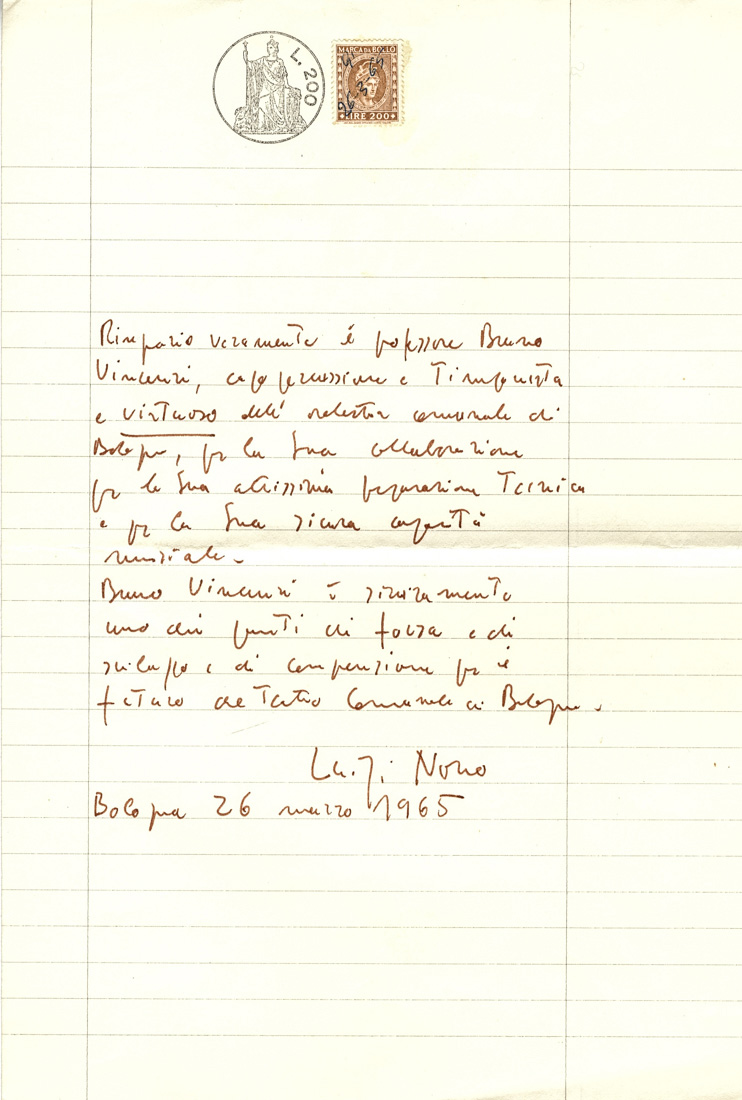 L. 200
MARCA DA BOLLO
26-3-65
LIRE 200
Ringrazio veramente il professore Bruno
Vincenzi, capo percussione e Timpanista
e virtuoso dell' orchestra comunale di
Bologna, per la Sua collaborazione
per la Sua altissima preparazione Tecnica
e per la Sua sicura capacità
musicale.
Bruno Vincenzi è sicuramente
uno dei punti di forza e di
sviluppo e di comprensione per il
futuro del Teatro Comunale di Bologna.
Luigi Nono
Bologna 26 marzo 1965